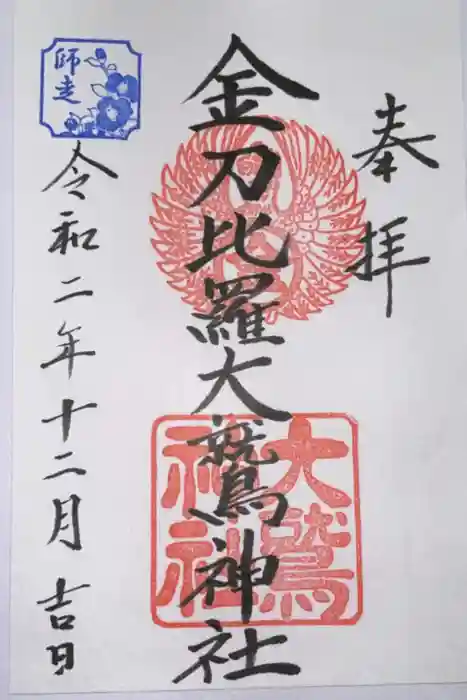 奉拝
金刀比羅大鷲神社
大鷲
神社
師走
令和二年十二月吉日